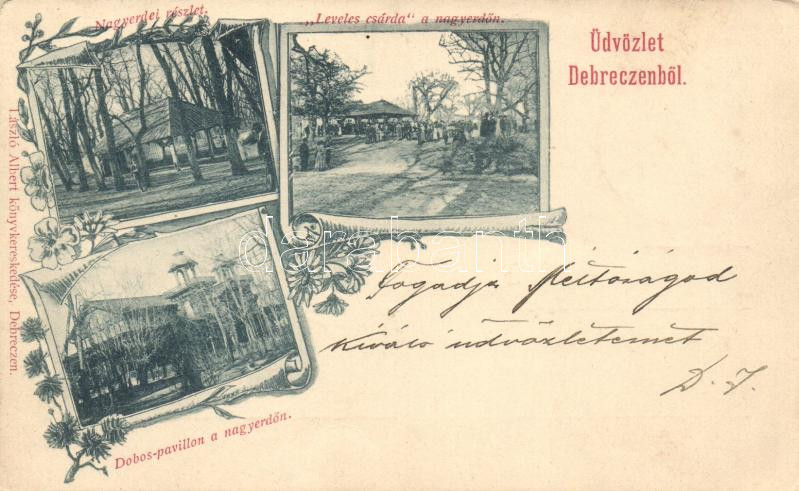 Nagyerdei részlet.
„Leveles csárda“ a nagyerdőn.
Üdvözlet
Debreczenből.
László Albert könyvkereskedése, Debreczen.
darabanth
Fogadja Méltóságod
kiváló üdvözletemet
D. J.
Dobos-pavillon a nagyerdőn.